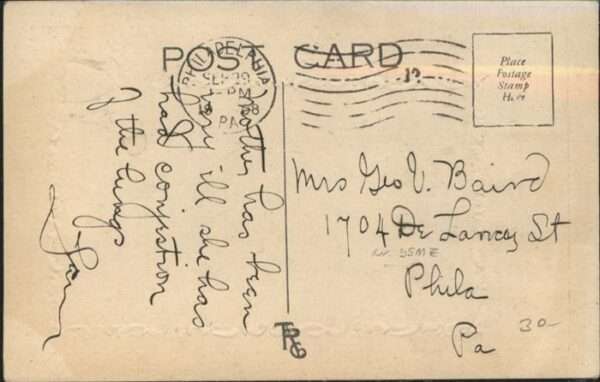 POST CARD
PHILADELPHIA
SEP 29
PM
PA
Place
Postage
Stamp
Here
Mother has been
very ill she has
had conjestion
of the lungs
Mrs Geo V. Baird
1704 De Lancey St
Phila
Pa
30-